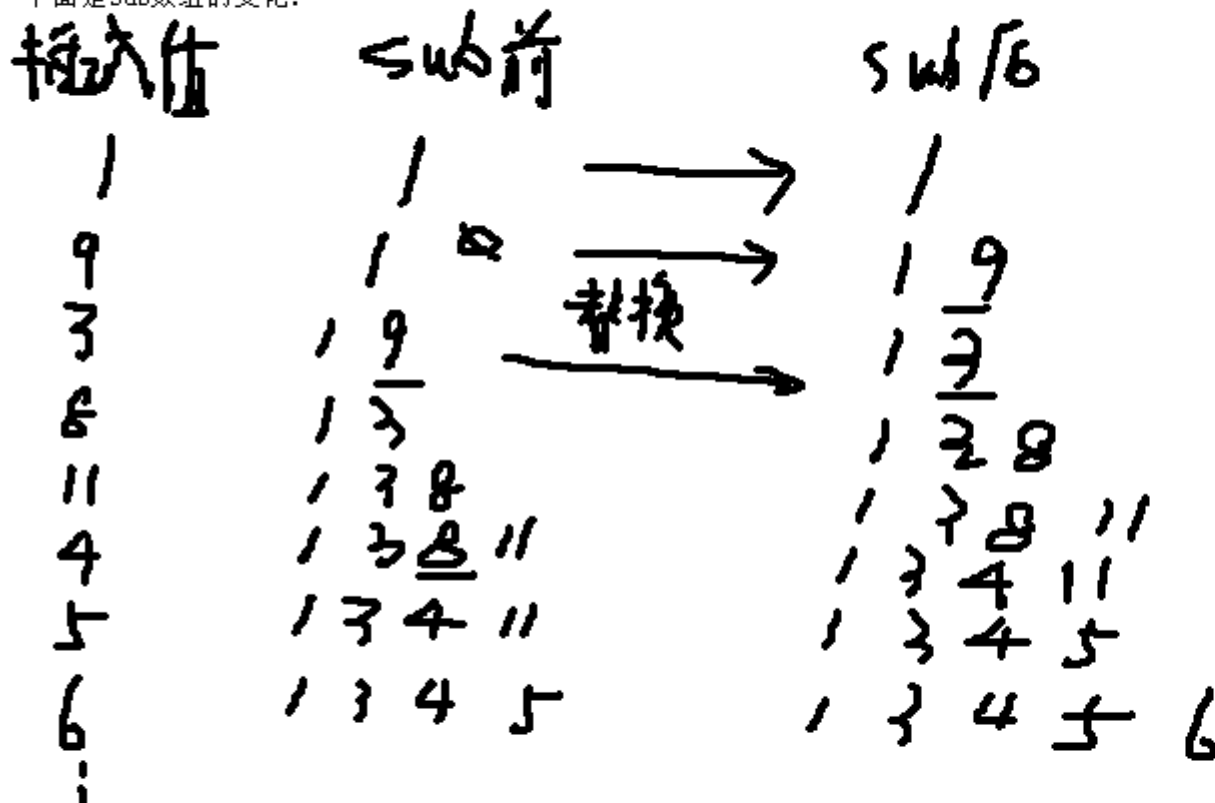 下面是sub数组的变化:
插入值 sub前 sub后
1 1 1
9 1 1 9
替换
3 1 9 1 3
8 1 3 1 3 8
11 1 3 8 1 3 8 11
4 1 3 8 11 1 3 4 11
5 1 3 4 11 1 3 4 5
6 1 3 4 5 1 3 4 5 6